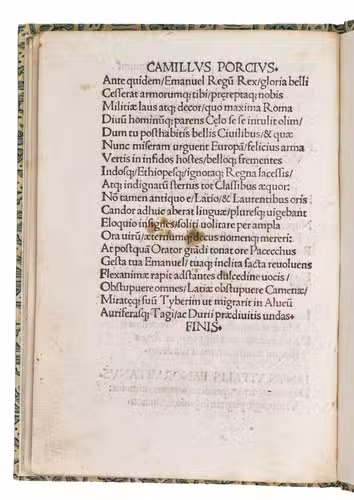 CAMILLVS PORCIVS.
Ante quidem/Emanuel Regū Rex/gloria belli
Cesserat armorumq; tibi/pręreptaq; nobis
Militiæ laus atq; decor/quo maxima Roma
Diuū hominūq; parens Cęlo se se intulit olim/
Dum tu posthabitis bellis Ciuilibus/& quæ
Nunc miseram urguent Europā/felicius arma
Vertis in infidos hostes/belloq; frementes
Indosq;/Ethiopesq;/ignotaq; Regna lacessis/
Atq; indignatū sternis tot Classibus æquor:
Nō tamen antiquo e/Latio/& Laurentibus oris
Candor adhuc aberat linguæ/pluresq; uigebant
Eloquio insignes/soliti uolitare per ampla
Ora uirū/æternumq; decus nomenq; mereri:
At postquā Orator grādi tonat ore Pacecchus
Gesta tua Emanuel/tuaq; inclita facta reuoluens
Flexanimæ rapit adstantes dulcedine uocis/
Obstupuere omnes/Latiæ obstupuere Camenæ/
Miratęq; suū Tyberim ut migrarit in Alueū
Auriferasq; Tagi/ac Durii prædiuitis undas.
FINIS.